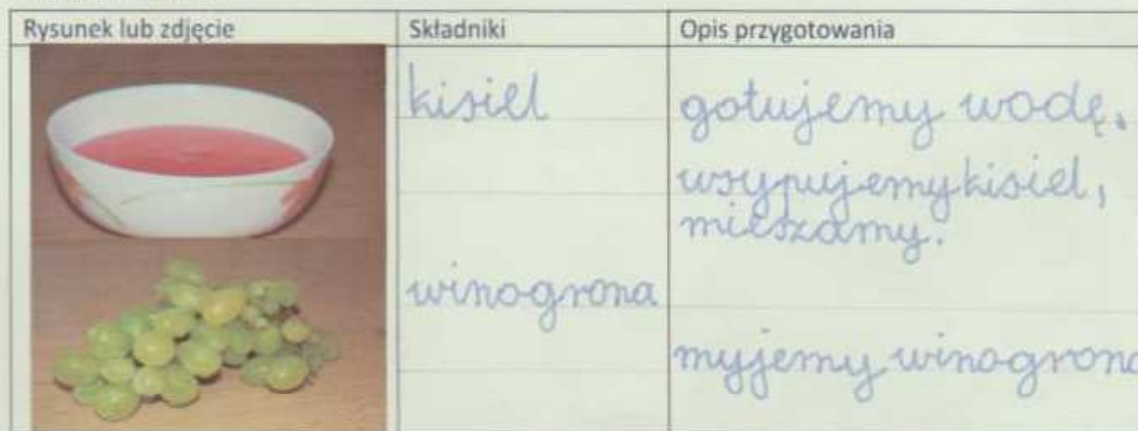 Rysunek lub zdjęcie
Składniki
Opis przygotowania
kisiel
winogrona
gotujemy wodę,
wsypujemy kisiel,
mieszamy.
myjemy winogrona